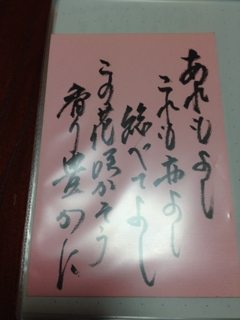 あれもよし
これも亦よし
総べてよし
この花咲かそう
香り豊かに